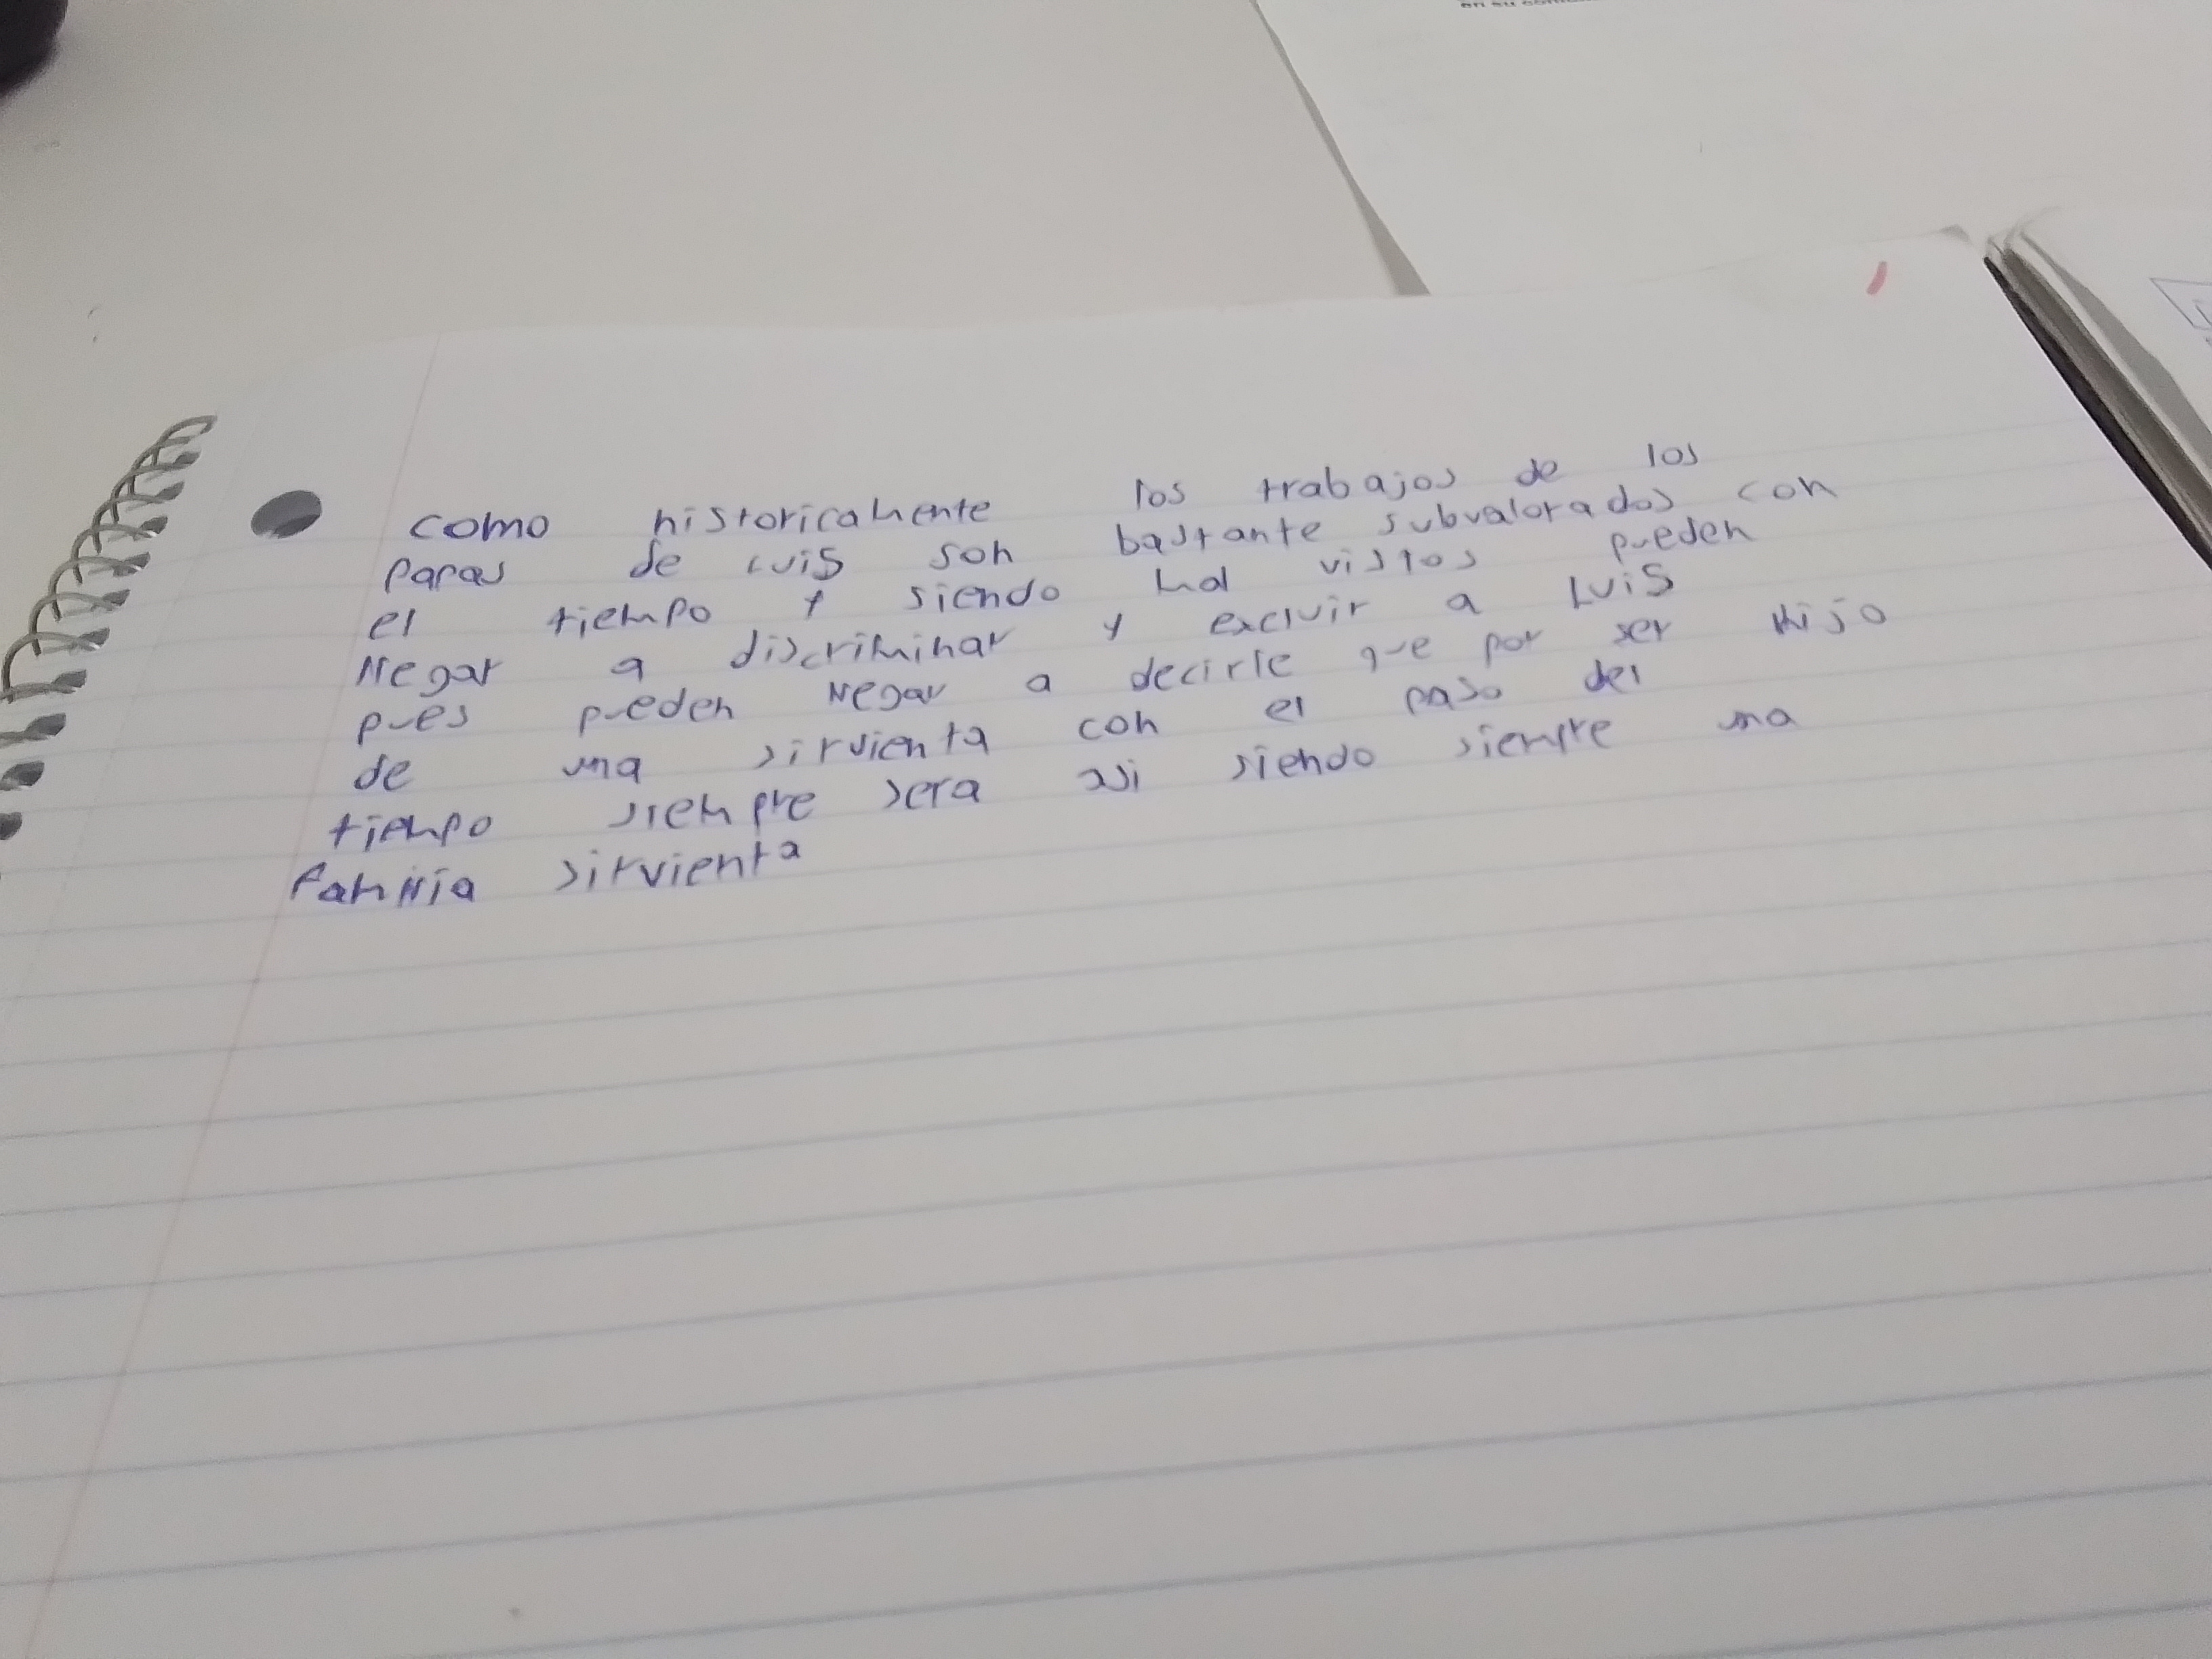 en su comun
como historicamente los trabajos de los
papas de LUiS son bastante subvalorados con
el tiempo y siendo mal vistos pueden
llegar a discriminar y excluir a LUiS
pues pueden llegar a decirle que por ser Hijo
de una sirvienta con el paso del
tiempo siempre sera asi siendo siempre una
familia sirvienta